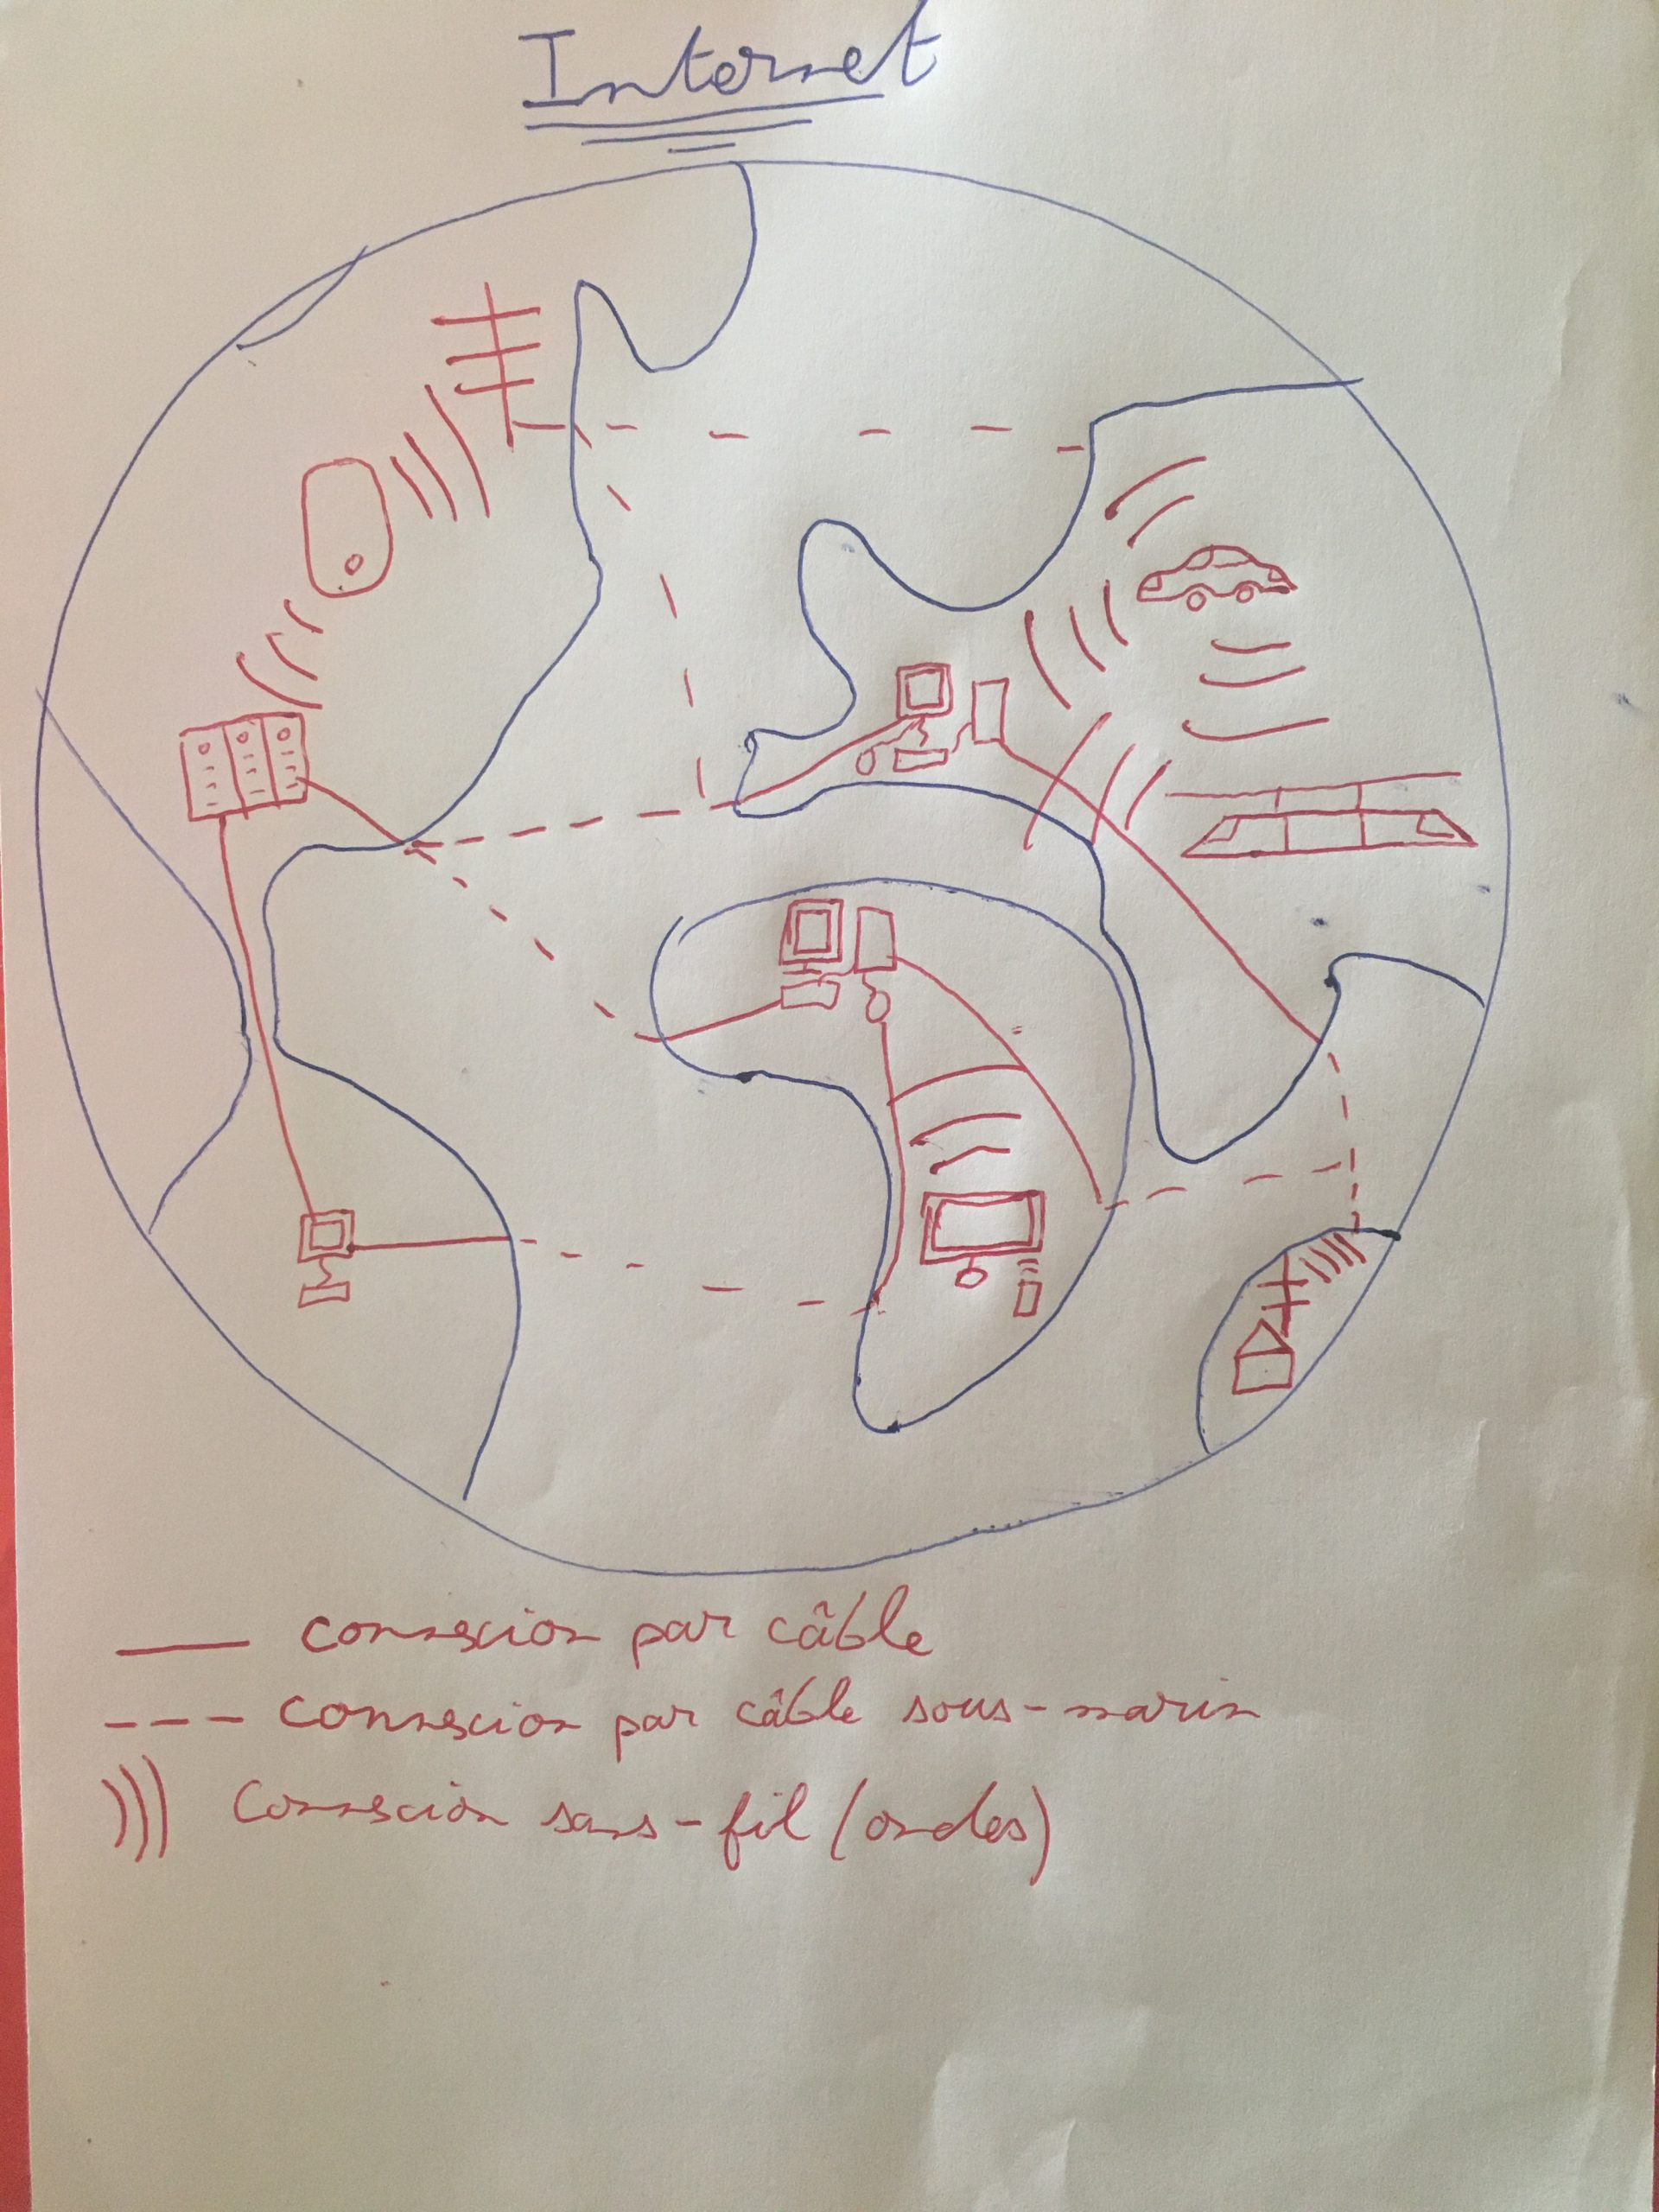 Internet
connexion par câble
connexion par câble sous-marin
Connexion sans-fil (ondes)